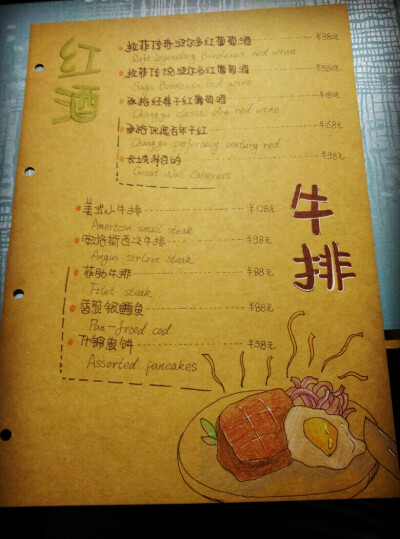 红酒
拉菲传奇波尔多红葡萄酒 ¥380元
Rafi legendary Bordeaux red wine
拉菲传说波尔多红葡萄酒 ¥380元
Saga Bordeaux red wine
张裕经典干红葡萄酒
Changyu classic dry red wine
张裕优选百年干红 ¥168元
Changyu preferably century red
长城 ¥98元
Great Wall Cabernet
牛排
美式小牛排 ¥128元
American small steak
安格斯西冷牛排 ¥98元
Angus sirloin steak
菲肋牛排 ¥88元
Filet steak
香煎银鳕鱼 ¥86元
Pan-fried cod
什锦煎饼 ¥98元
Assorted pancakes